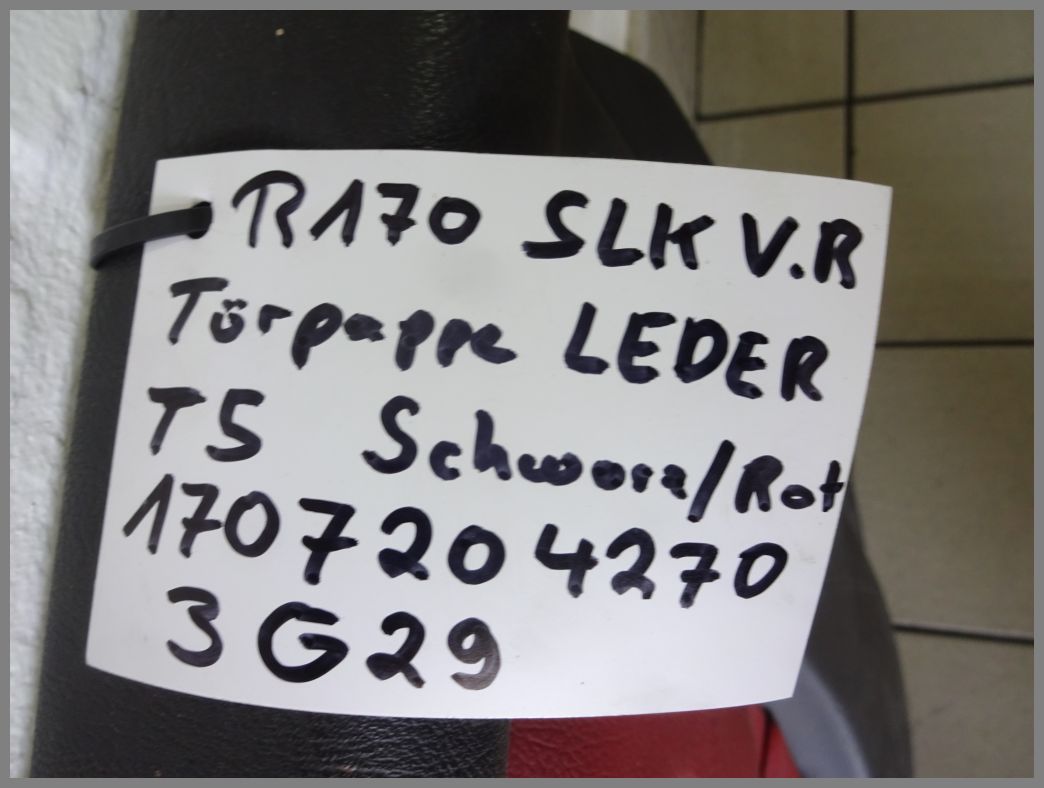 R170 SLK V.R
Törpappe LEDER
T5 Schwarz/Rot
170 720 4270
3 G29